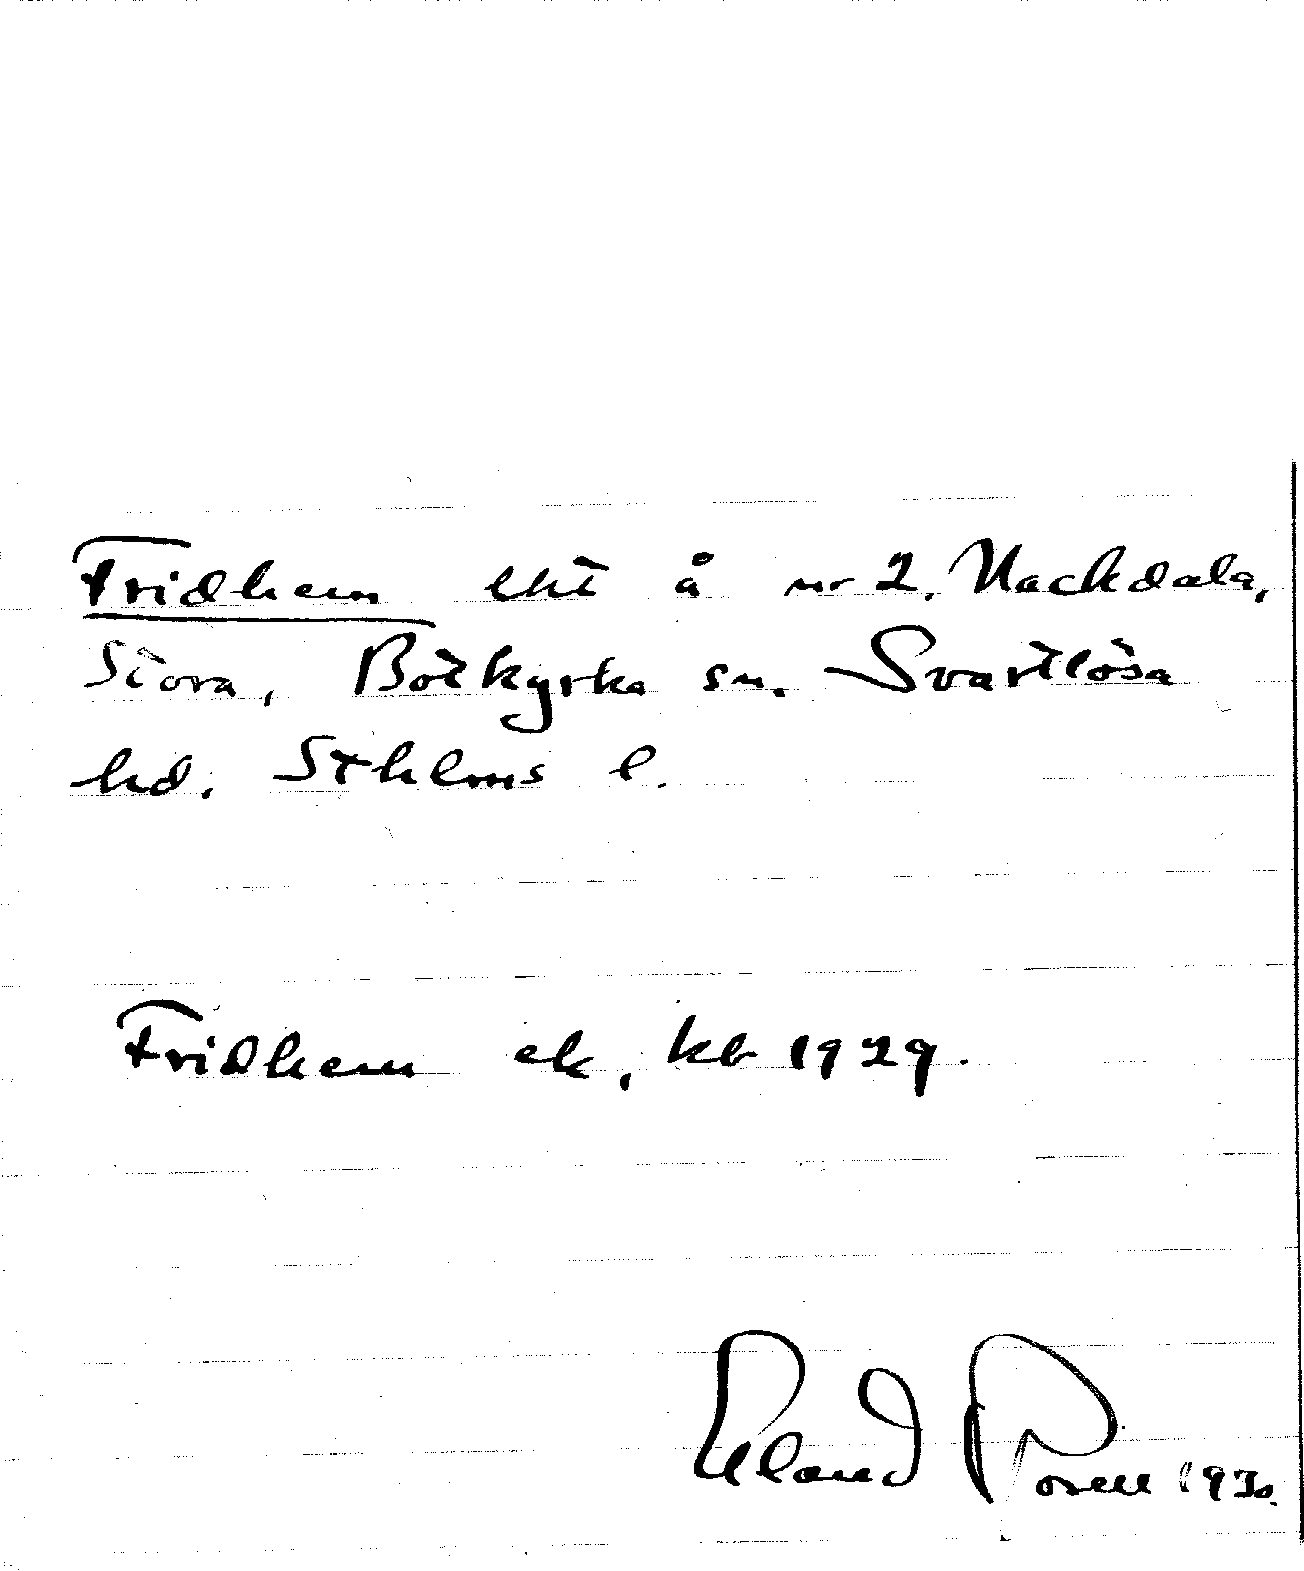 Fridhem lht å nr 2, Hackdala,
Stora, Botkyrka sn. Svartlösa
hd. Sthlms l.
Fridhem ek, kb 1929.
Erland Rosell 1930.